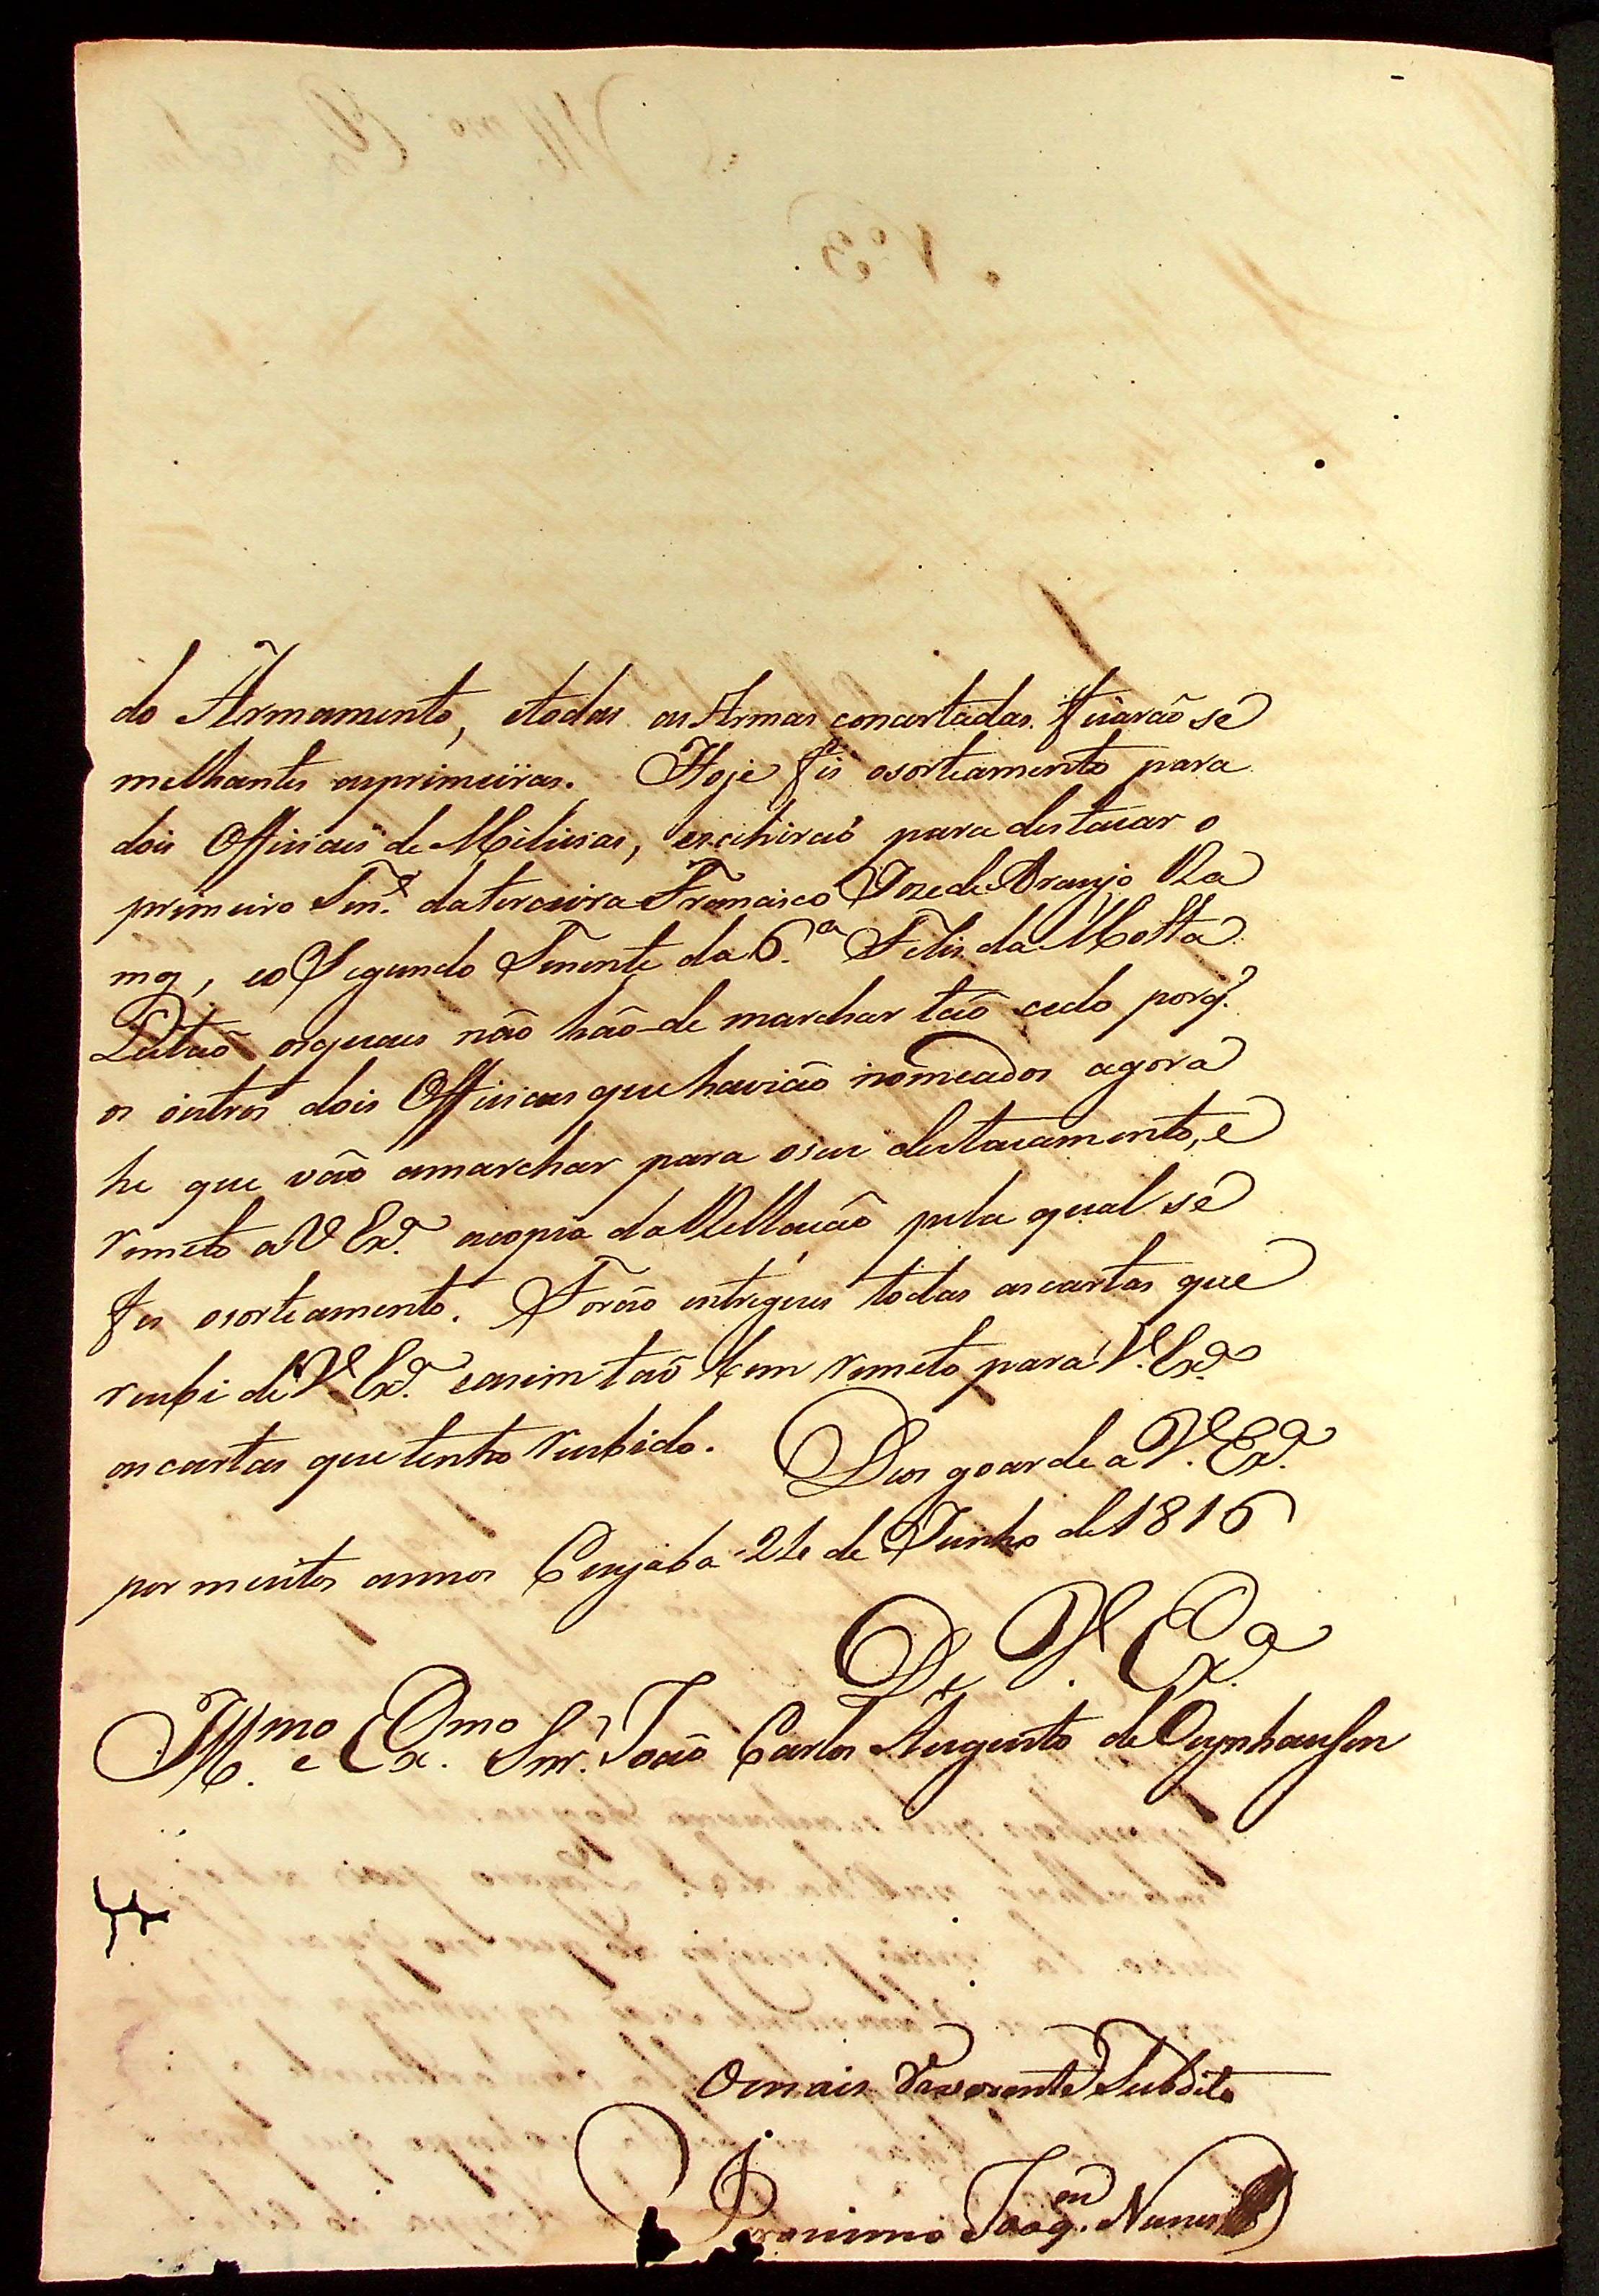 do Armamento, etodas as Armas concertadas. ficarão se
melhantes asprimeiras. Hoje fis osorteamento para
dois Officiais de Milicias, esahiraõ para destacar o
primeiro Ten.e daterceira Francisco Joze de Araujo Ra
mos, eo Segundo Tenente da 6.a Felis da Motta
Leitaõ osquais não hão-de marchar taõ cedo porq.e
os outros dois Officiaes que havião nomeados agora
he que vão amarchar para oseu destacamento, e
remeto a V Ex.a acopia da Rellacão pela qual se
fes osorteamento. Forão entregues todas ascartas que
recebi de V. Ex.a easim taõ bem remeto para V. Ex.a
as cartas que tenho recebido. Deos goarde a V. Ex.a
por muitos annos Cuyaba 21 de Junho de 1816
De V. Ex.a
Ill.mo e Ex.mo Snr. João Carlos Augusto de Oeynhausen
Omais Reverente Subdito
Jeronimo Joaq.m Nunes
N.o 3